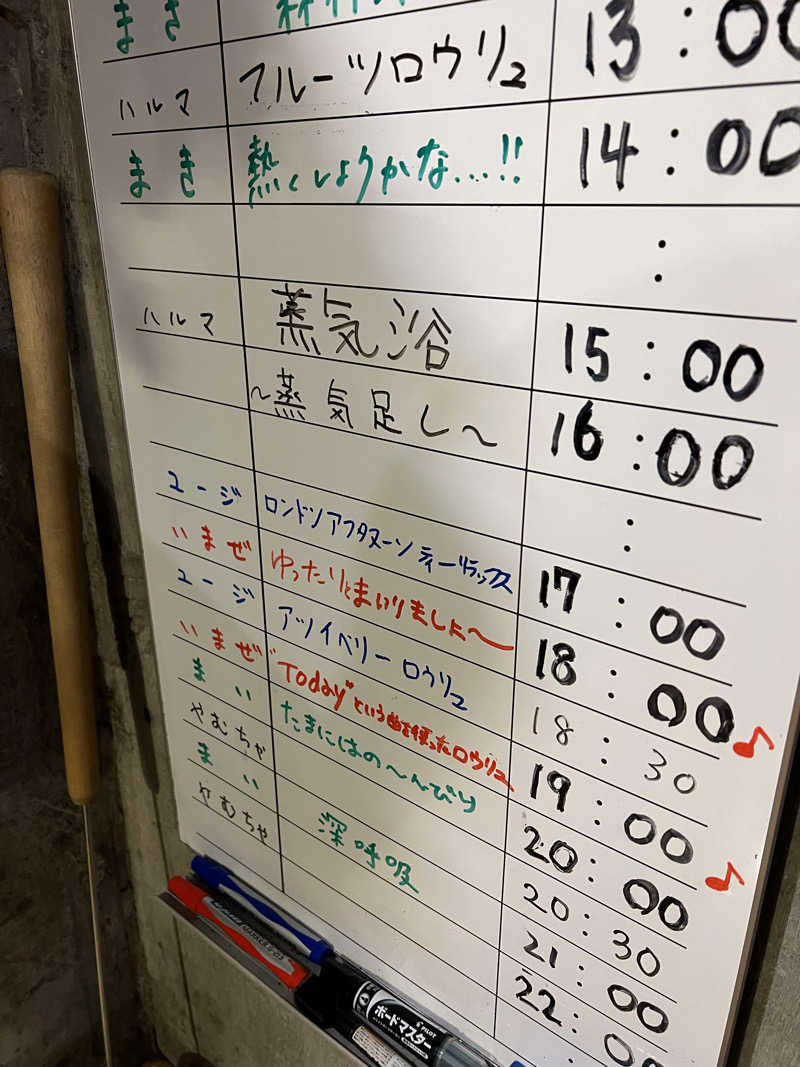 まき 13:00
ハルマ フルーツロウリュ 14:00
まき 熱くしようかな...!!
:
ハルマ 蒸気浴 15:00
~蒸気足し~ 16:00
:
ユージ ロンドンアフタヌーンティーリラックス 17:00
いまぜ ゆったりとまいりましょ~ 18:00
ユージ アツイベリーロウリュ 18:30
いまぜ "Today"という曲を使ったロウリュ 19:00
まい たまにはの~んびり 20:00
やむちゃ 20:30
まい 深呼吸 21:00
やむちゃ 22:00
PILOT
ボードマスター